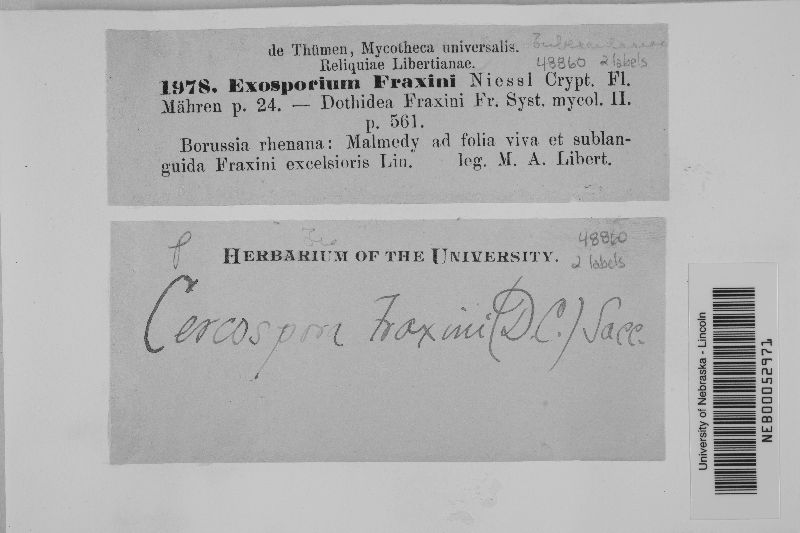 de Thümen, Mycotheca universalis.
Reliquiae Libertianae.
48860 2 labels
1978. Exosporium Fraxini Niessl Crypt. Fl.
Mähren p. 24. — Dothidea Fraxini Fr. Syst. mycol. II.
p. 561.
Borussia rhenana: Malmedy ad folia viva et sublan-
guida Fraxini excelsioris Lin. leg. M. A. Libert.
48860
2 labels
HERBARIUM OF THE UNIVERSITY.
Cercospora Fraxini (DC.) Sacc.
University of Nebraska - Lincoln
NEB00052971